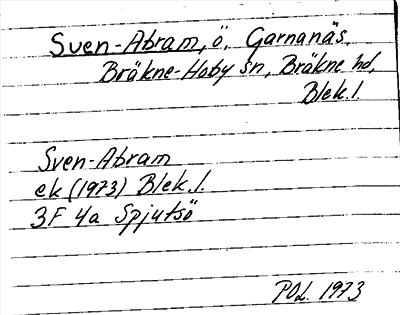 Sven-Abram, ö. Garnanäs,
Bräkne-Hoby sn, Bräkne hd,
Blek. l.
Sven-Abram
ek (1973) Blek. l.
3F 4a Spjutsö
POL. 1973